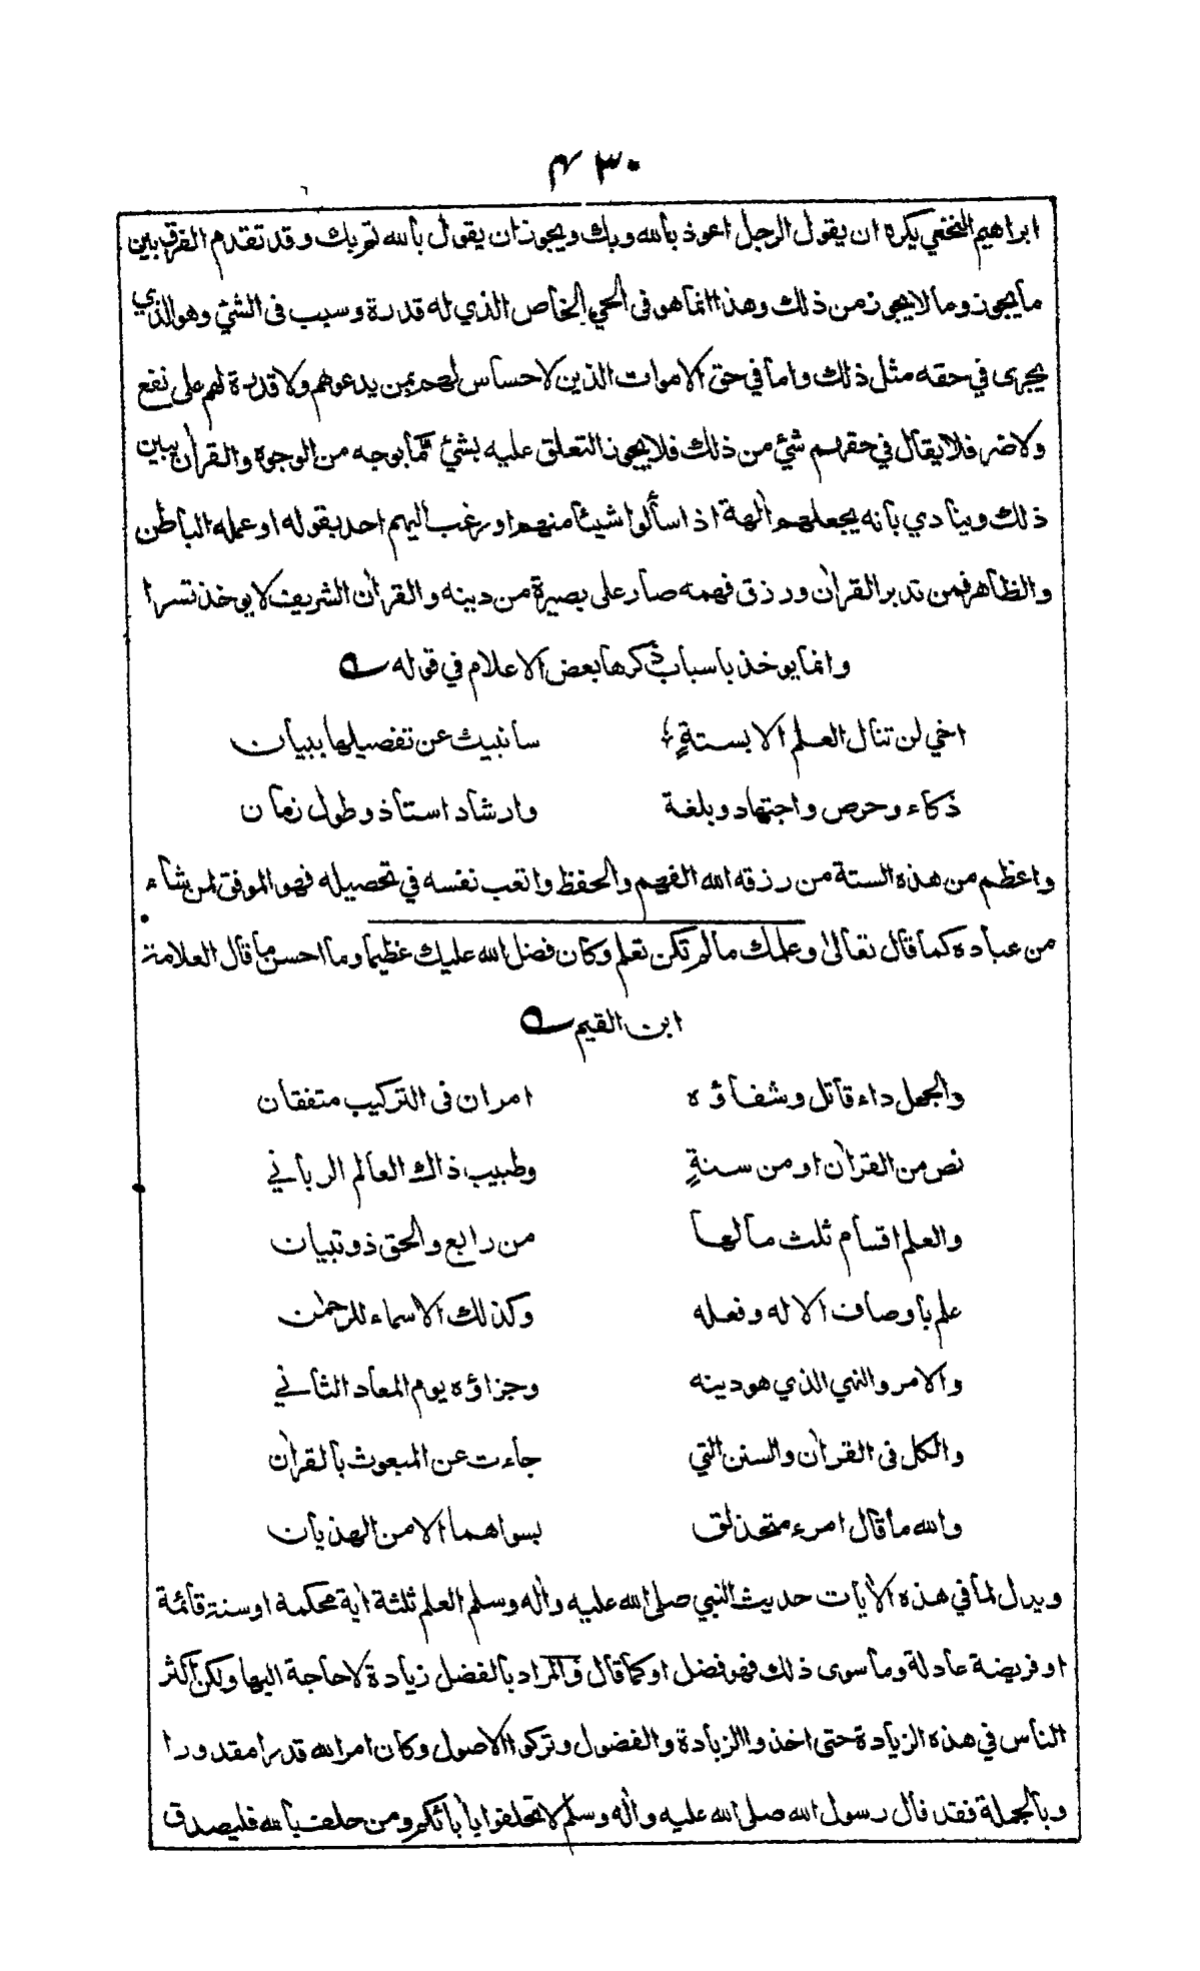 ۴۳۰
ابراهيم النخعي يكره ان يقول الرجل اعوذ بالله وبك ويجوز ان يقول بالله ثم بك وقد تقدم الفرق بين
ما يجوز وما لا يجوز من ذلك وهذا انما هو فى الحي الخاص الذي له قدرة وسبب فى الشئ وهو الذي
يجرى في حقه مثل ذلك واما في حق الاموات الذين لا حساس لهم بمن يدعوهم ولا قدرة لهم على نفع
ولا ضر فلا يقال في حقهم شئ من ذلك فلا يجوز التعلق عليه بشئ مّا بوجه من الوجوه والقراٰن يبين
ذلك وينادي بانه يجعلهم اٰلهة اذا سألوا شيئا منهم او رغب اليهم احد بقوله او عمله الباطن
والظاهر فمن تدبر القراٰن ورزق فهمه صار على بصيرة من دينه والقراٰن الشريف لا يوخذ تسرا
وانما يوخذ باسباب ذكرها بعض الاعلام في قوله ؎
اخي لن تنال العلم الا بستةٍ سانبيك عن تفصيلها ببيان
ذكاء وحرص واجتهاد وبلغة وارشاد استاذ وطول زمان
واعظم من هذه الستة من رزقه الله الفهم والحفظ واتعب نفسه في تحصيله فهو الموفق لمن شاء
من عباده كما قال تعالىٰ وعلمك ما لم تكن تعلم وكان فضل الله عليك عظيما وما احسن ما قال العلامة
ابن القيم ؎
والجهل داء قاتل وشفاؤه امران فى التركيب متفقان
نص من القراٰن او من سنةٍ وطبيب ذاك العالم الرباني
والعلم اقسام ثلث ما لها من رابع والحق ذو تبيان
علم باوصاف الاله وفعله وكذلك الاسماء للرحمٰن
والامر والنهي الذي هو دينه وجزاؤه يوم المعاد الثاني
والكل فى القراٰن والسنن التي جاءت عن المبعوث بالقراٰن
والله ما قال امرء متحذلق بسواهما الا من الهذيان
ويدل لما في هذه الاٰيات حديث النبي صلى الله عليه واٰله وسلم العلم ثلثة اٰية محكمة او سنة قائمة
او فريضة عادلة وما سوى ذلك فهو فضل او كما قال والمراد بالفضل زيادة لا حاجة اليها ولكن اكثر
الناس في هذه الزيادة حتى اخذوا الزيادة والفضول وتركوا الاصول وكان امر الله قدرا مقدورا
وبالجملة فقد قال رسول الله صلى الله عليه واٰله وسلم لا تحلفوا باٰبائكم ومن حلف بالله فليصدق